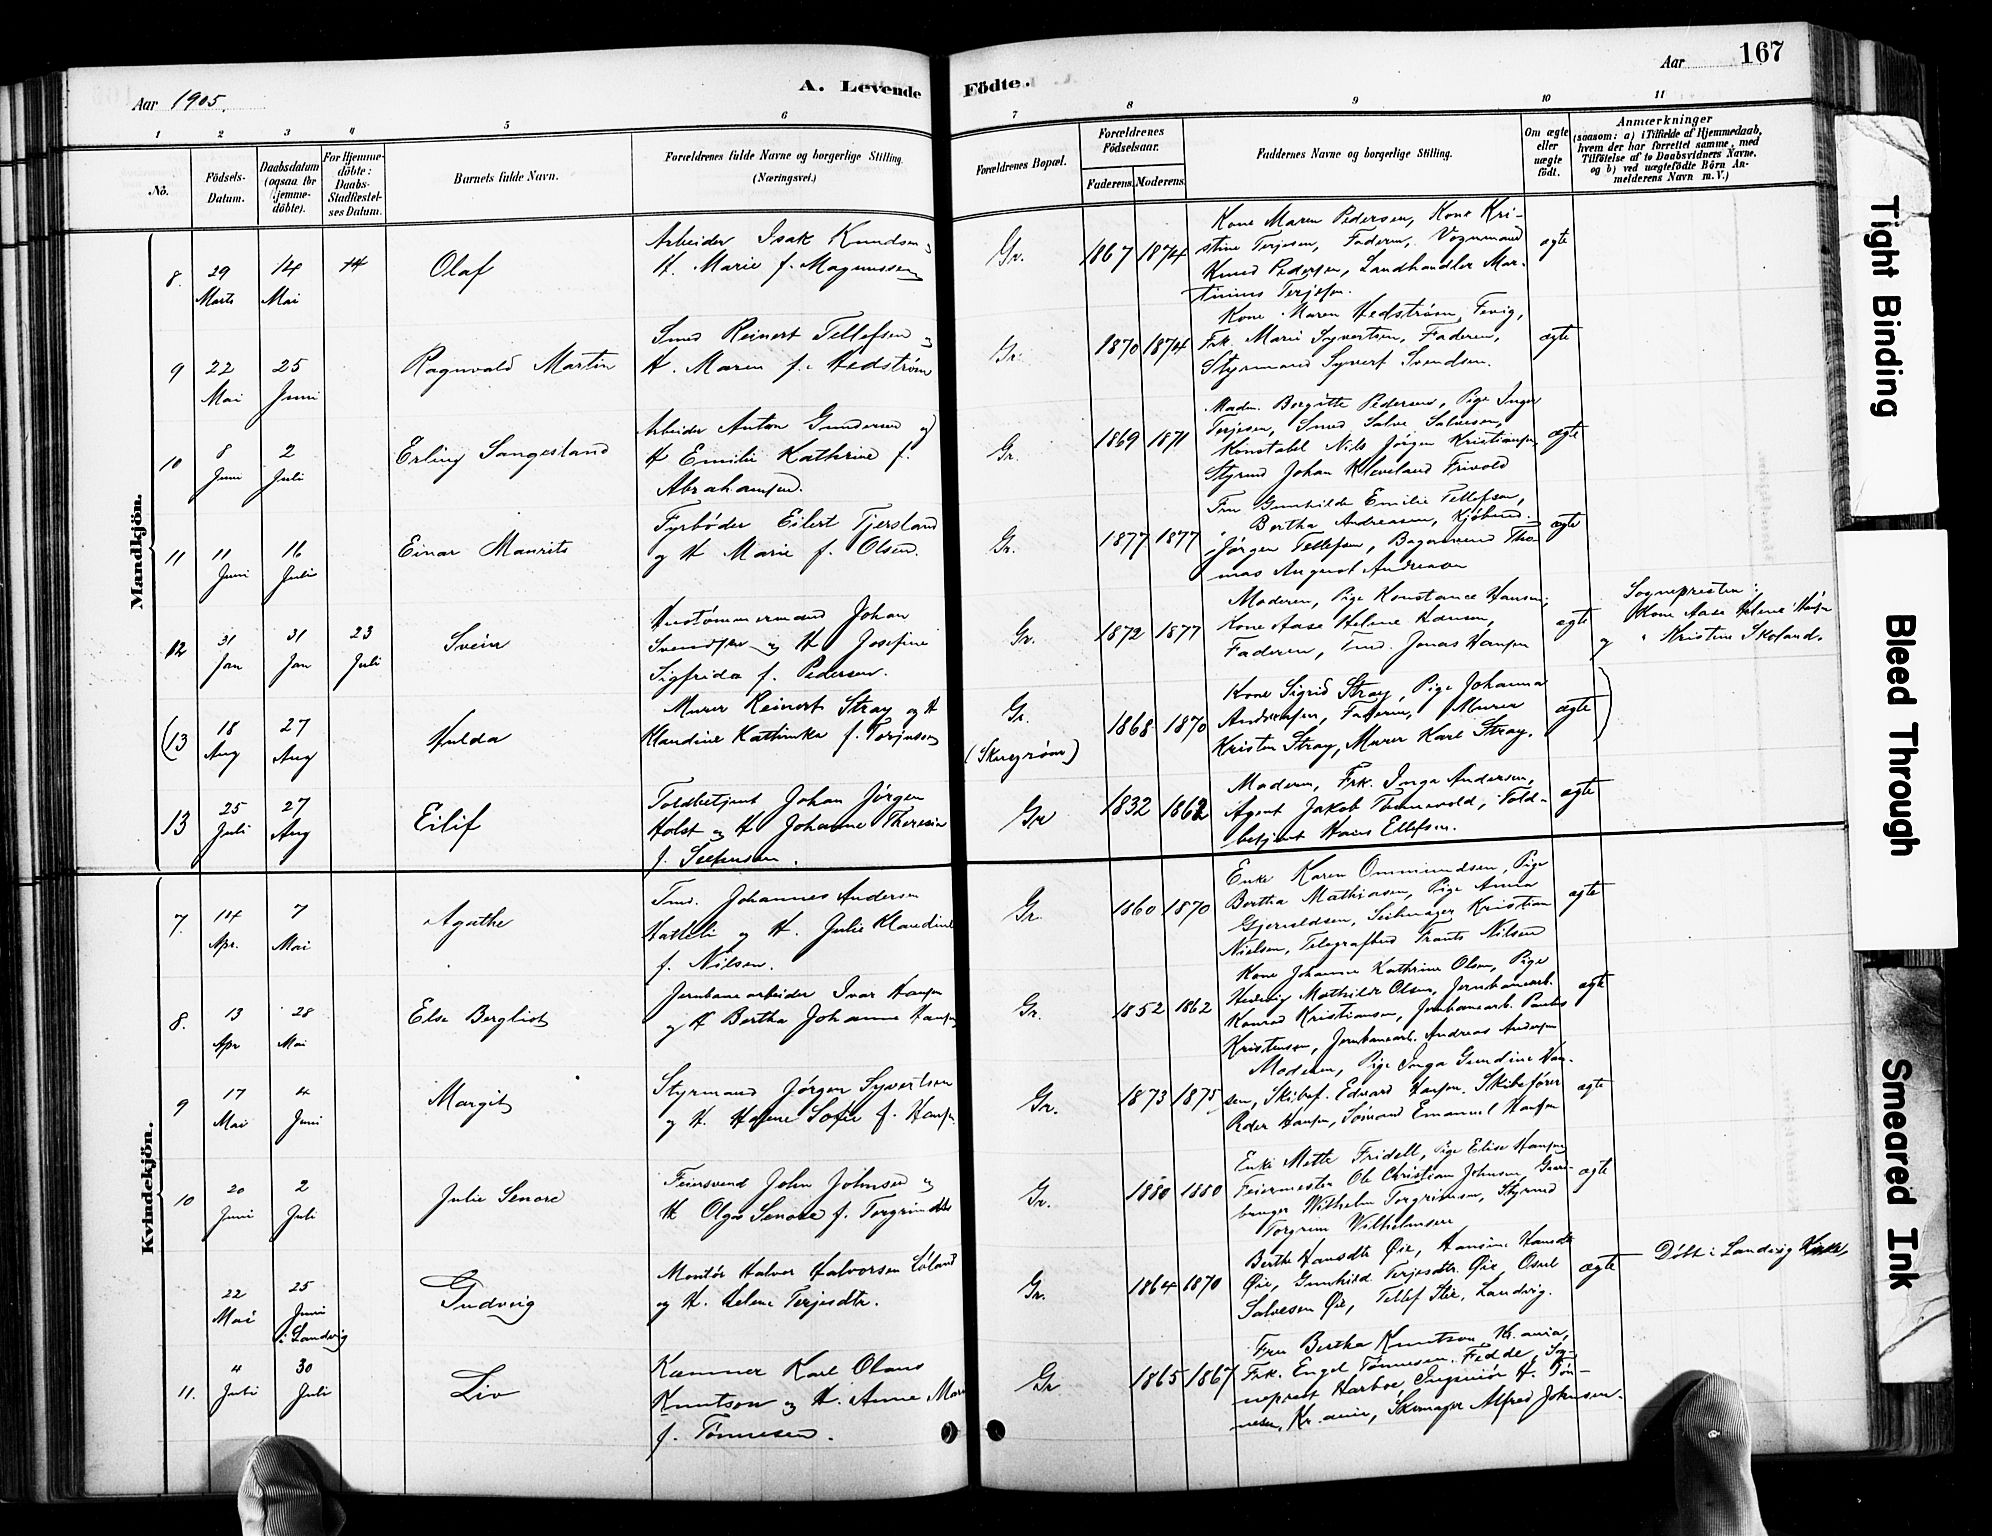 167
Aar 1905.
A. Levende Födte.
Aar
1 2 3 4 5 6 7 8 9 10 11
No.
Födsels-Datum.
Daabsdatum (ogsaa for hjemme-döbte).
For Hjemme-döbte: Daabs-Stadfæstel-ses Datum.
Barnets fulde Navn.
Forældrenes fulde Navne og borgerlige Stilling. (Næringsvei.)
Forældrenes Bopæl.
Forældrenes Födselsaar.
Faderens. Moderens.
Faddernes Navne og borgerlige Stilling.
Om ægte eller uægte födt.
Anmærkninger
(saasom: a) i Tilfælde af Hjemmedaab, hvem der har forrettet samme, med Tilföielse af to Daabsvidners Navne, og b) ved uægtefödte Börn An-melderens Navn m. V.)
Mandkjön.
8 29 Marts 14 Mai 14 Olaf
Arbeider Isak Knudsen og
H. Marie f. Magnussen
Gr. 1867 1874
Kone Maren Pedersen, Kone Kri-
stine Terjesen, Faderen, Vognmand
Knud Pedersen, Landhandler Mar-
tinius Terjesen.
ægte
9 22 Mai 25 Juni Ragnvald Martin
Smed Reinert Tellefsen og
H. Maren f. Hedstrøm
Gr. 1870 1874
Kone Maren Hedstrøm, Fevig,
Frk. Marie Syvertsen, Faderen,
Styrmand Syvert Svendsen.
ægte
10 8 Juni 2 Juli Erling Sangesland
Arbeider Anton Gundersen og
H Emilie Kathrine f.
Abrahamsen.
Gr. 1869 1871
Madm. Borgitte Pedersen, Pige Inger
Terjesen, Smed Salve Salvesen,
Konstabel Nils Jörgen Kristiansen
Styrmd Johan Kleveland Frivold
ægte
11 11 Juni 16 Juli Einar Maurits
Fyrbøder Eilert Tjersland
og H Marie f. Olsen.
Gr. 1877 1877
Fru Gunhilde Emilie Tellefsen,
" Bertha Andreasen, Kjøbmd.
Jørgen Tellefsen, Bagersvend Tho-
mas August Andreasen
ægte
12 31 Jan 31 Jan 23 Juli Svein
Hustømmermand Johan
Svendsen og H Josefine
Sigfrida f. Pedersen.
Gr. 1872 1877
Moderen, Pige Konstance Hansen,
Kone Aase Helene Hansen,
Faderen, Tmd. Jonas Hansen
ægte
Sognepresten:
Kone Aase Helene Hansen
og " Kristine Skoland.
(13 18 Aug 27 Aug Hulda
Murer Reinert Stray og H
Klaudine Kathinka f. Terjesen
Gr. (Skaregrøm) 1868 1870
Kone Sigrid Stray, Pige Johanna
Andersen, Faderen, Murer
Kristen Stray, Murer Karl Stray.
ægte )
13 25 Juli 27 Aug Eilif
Toldbetjent Johan Jörgen
Holst og H Johanne Theresia
f. Stephensen.
Gr 1832 1862
Moderen, Frk. Inga Andersen,
Agent Jakob Thorsvold, Told-
betjent Hans Ellefsen.
ægte
Kvindekjön.
7. 14 Apr. 7 Mai Agathe
Tmd. Johannes Andersen
Hatteli og H. Julie Klaudine
f. Nilsen.
Gr. 1860 1870
Enke Karen Ommundsen, Pige
Bertha Mathiasen, Pige Anna
Gjeruldsen, Seilmager Kristian
Nielsen, Telegrafbud Frants Nilsen
ægte
8. 13 Apr 28 Mai Else Bergliot
Jernbanearbeider Ivar Hansen
og H Bertha Johanne Hansen
Gr. 1852 1862
Kone Johanne Kathrine Olsen, Pige
Hedevig Mathilde Olsen, Jernbanearb.
Konrad Kristiansen, Jernbanearb. Paulus
Kristensen, Jernbanearb. Andreas Andersen
ægte
9 17 Mai 4 Juni Margit
Styrmand Jørgen Syvertsen
og H. Helene Sofie f. Hansen
Gr. 1873 1875
Moderen, Pige Inga Gundine Han-
sen, Skibsf. Edvard Hansen, Skibsfører
Peder Hansen, Sømand Emanuel Hansen
ægte
10 20 Juni 2 Juli Julie Senore
Feiersvend John Johnsen og
H Olga Senore f. Torgrimsdtr
Gr. 1880 1880
Enke Mette Fridell, Pige Elise Hansen
Feiermester Ole Christian Johnsen, Gaard-
bruger Wilhelm Torgrimsen, Styrmd
Torgrim Wilhelmsen
ægte
22 Mai 25 Juni i Landvig Gudveig
Montør Halvor Halvorsen Løland
og H. Helene Terjesdtr.
Gr. 1864 1870
Berthe Hansdtr Øie, Hansine Hansdtr
Øie, Gunhild Terjesdtr. Øie, Osuld
Salvesen Øie, Tellef Øie, Landvig.
ægte
Døbt i Landvig Kirke
11. 4 Juli 30 Juli Liv
Kæmner Karl Olaus
Knutson og H. Anne Marie
f. Tønnesen.
Gr 1865 1867
Fru Bertha Knutson Kr.ania,
Frk. Engel Tønnesen, Fedde, Sog-
neprest Harboe Ingeniør H. Tøn-
nesen, Kr.ania, Skomager Alfred Johnsen.
Tight Binding
Bleed Through
Smeared Ink